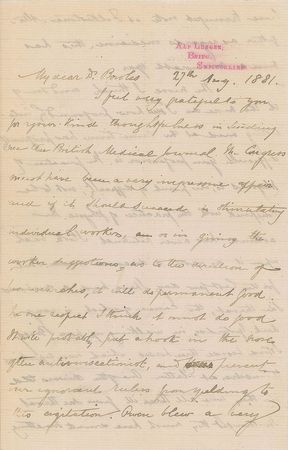 ALP LUSGEN,
BRIEG,
SWITZERLAND
27th Aug. 1881.
My dear Dr. Rootes
I feel very grateful to you
for your kind thoughtfulness in sending
me the British Medical Journal. The Congress
must have been a very impressive affair
and if it should succeed in stimulating
individual workers, or in giving the
worker suggestions as to the direction of
researches, it will do permanent good.
In one respect I think it must do good.
It will probably put a hook in the nose
of the antivivisectionist, and prevent
our ignorant rulers from yielding to
his agitation. Owen blew a very